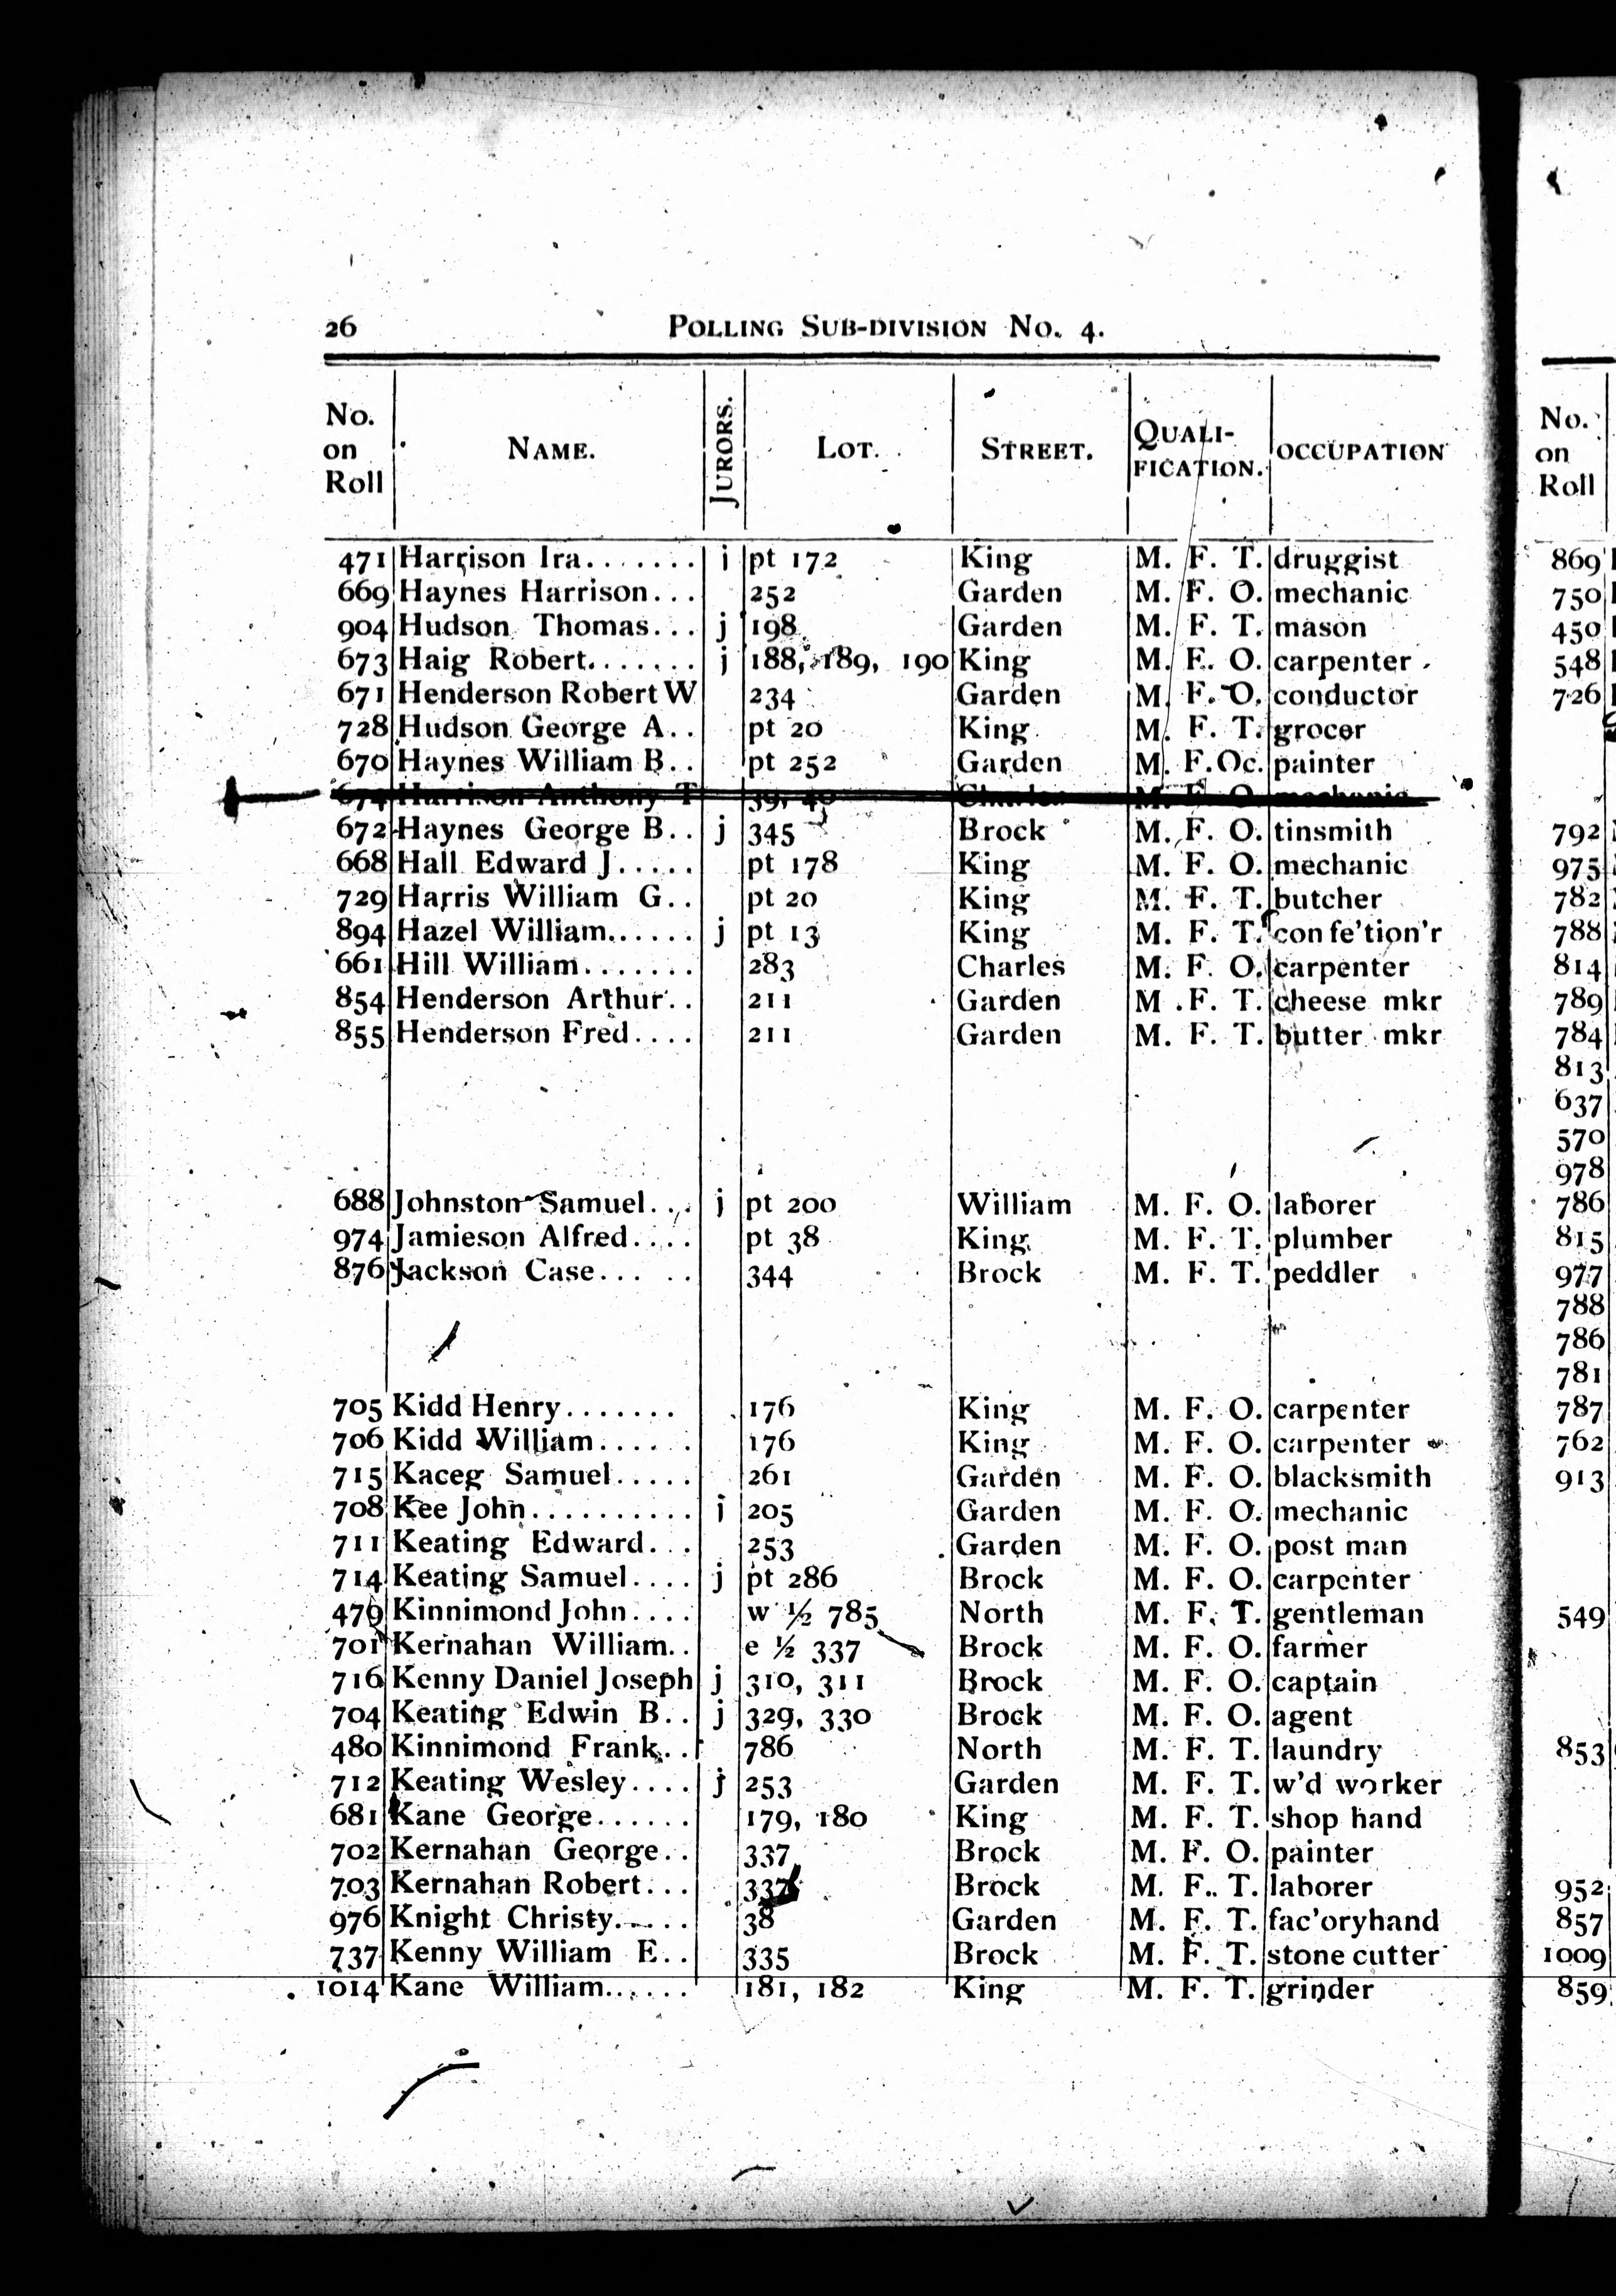 26 POLLING SUB-DIVISION No. 4.
No. on Roll NAME. JURORS. LOT. STREET. QUALI-FICATION. OCCUPATION
471 Harrison Ira....... j pt 172 King M. F. T. druggist
669 Haynes Harrison... 252 Garden M. F. O. mechanic
904 Hudson Thomas... j 198 Garden M. F. T. mason
673 Haig Robert....... j 188, 189, 190 King M. F. O. carpenter
671 Henderson Robert W 234 Garden M. F. O. conductor
728 Hudson George A.. pt 20 King M. F. T. grocer
670 Haynes William B.. pt 252 Garden M. F. Oc. painter
674 Harrison Anthony T 39, 40 Charles M. F. O. mechanic
672 Haynes George B.. j 345 Brock M. F. O. tinsmith
668 Hall Edward J..... pt 178 King M. F. O. mechanic
729 Harris William G.. pt 20 King M. F. T. butcher
894 Hazel William...... j pt 13 King M. F. T. confe'tion'r
661 Hill William....... 283 Charles M. F. O. carpenter
854 Henderson Arthur.. 211 Garden M. F. T. cheese mkr
855 Henderson Fred.... 211 Garden M. F. T. butter mkr
688 Johnston Samuel... j pt 200 William M. F. O. laborer
974 Jamieson Alfred.... pt 38 King M. F. T. plumber
876 Jackson Case... .. 344 Brock M. F. T. peddler
705 Kidd Henry....... 176 King M. F. O. carpenter
706 Kidd William...... 176 King M. F. O. carpenter
715 Kaceg Samuel..... 261 Garden M. F. O. blacksmith
708 Kee John.......... j 205 Garden M. F. O. mechanic
711 Keating Edward... 253 Garden M. F. O. post man
714 Keating Samuel.... j pt 286 Brock M. F. O. carpenter
479 Kinnimond John.... w ½ 785 North M. F. T. gentleman
701 Kernahan William.. e ½ 337 Brock M. F. O. farmer
716 Kenny Daniel Joseph j 310, 311 Brock M. F. O. captain
704 Keating Edwin B.. j 329, 330 Brock M. F. O. agent
480 Kinnimond Frank.. 786 North M. F. T. laundry
712 Keating Wesley.... j 253 Garden M. F. T. w'd worker
681 Kane George...... 179, 180 King M. F. T. shop hand
702 Kernahan George.. 337 Brock M. F. O. painter
703 Kernahan Robert... 337 Brock M. F. T. laborer
976 Knight Christy..... 38 Garden M. F. T. fac'oryhand
737 Kenny William E.. 335 Brock M. F. T. stone cutter
1014 Kane William...... 181, 182 King M. F. T. grinder
No.
on
Roll
869
750
450
548
726
792
975
782
788
814
789
784
813
637
570
978
786
815
977
788
786
781
787
762
913
549
853
952
857
1009
859